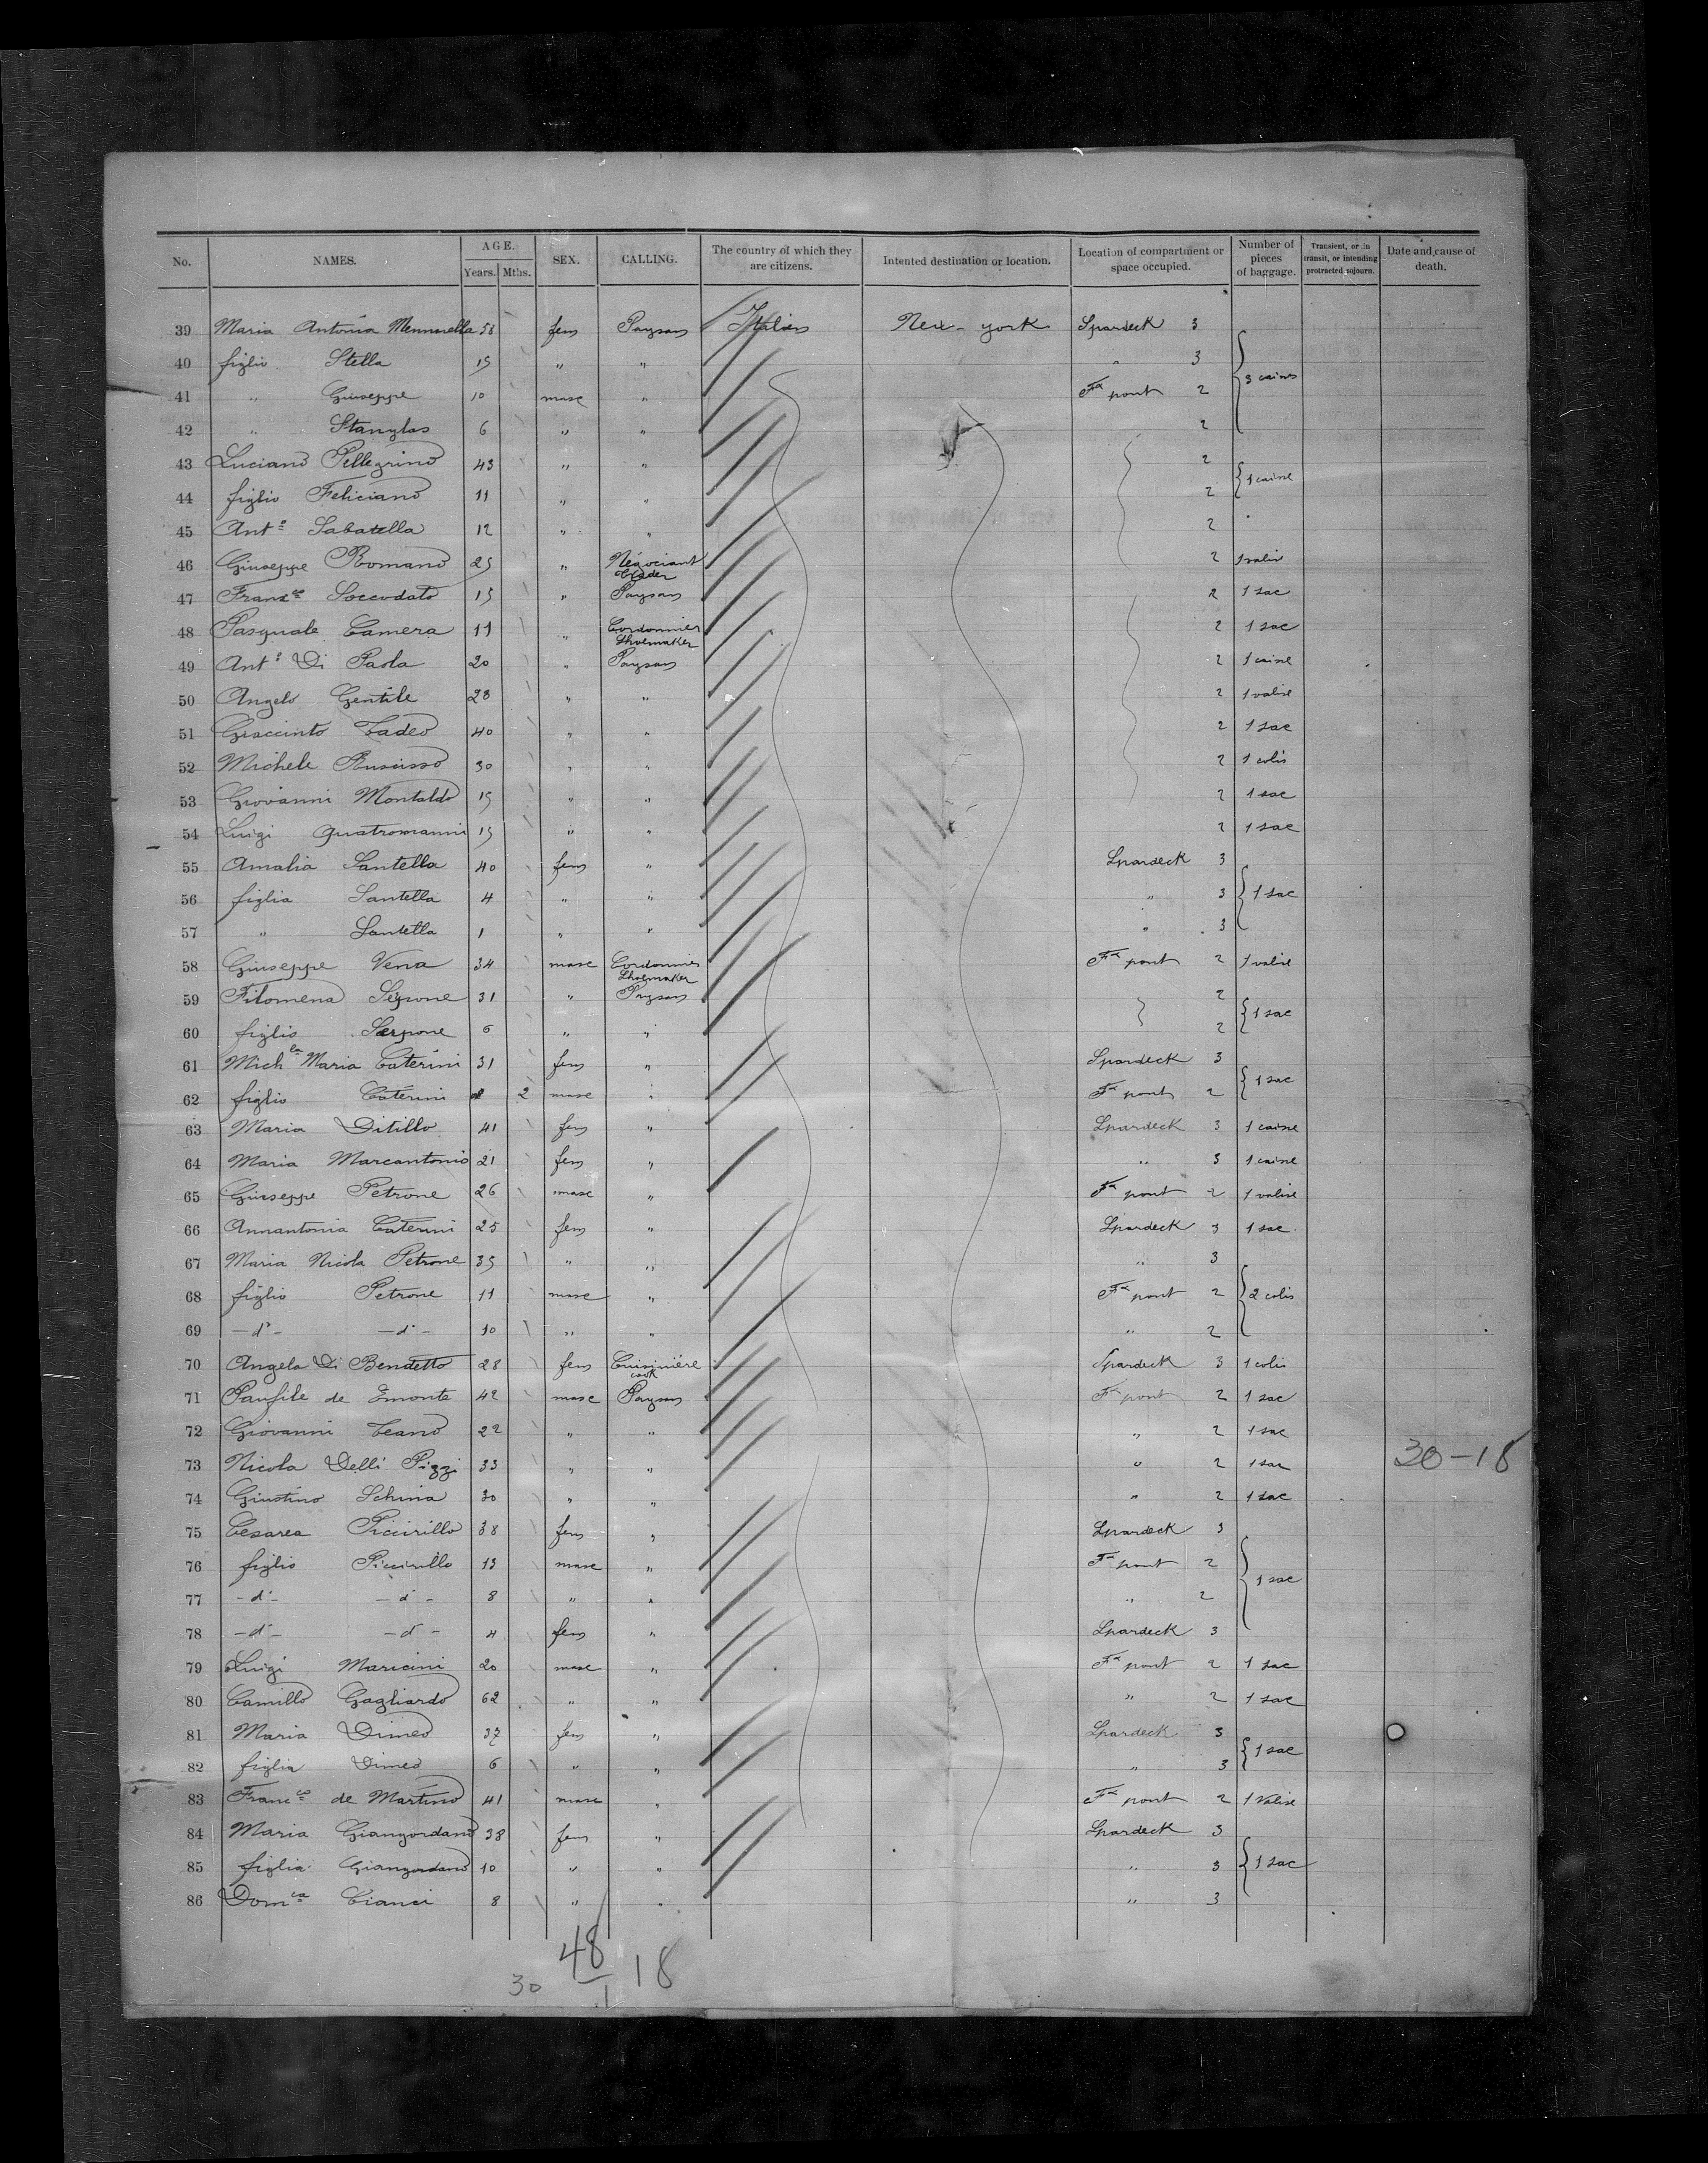 No. NAMES. AGE. Years. Mths. SEX. CALLING. The country of which they are citizens. Intented destination or location. Location of compartment or space occupied. Number of pieces of baggage. Transient, or in transit, or intending protracted sojourn. Date and cause of death.
39 Maria Antonia 58 fem Paysan Italien New-york Spardeck 3
40 figlio Stella 15 " " " 3
41 " Giuseppe 10 masc " Fx pont 2 } 3 caises
42 " Stanylas 6 " " 2
43 Luciano Pellegrino 43 " " 2
44 figlio Feliciano 11 " " 2 } 1 caisse
45 Anto Sabatella 12 " " 2
46 Giuseppe Romano 25 " Négociant 2 1 valise
47 Franco Soccodato 15 " Paysan 2 1 sac
48 Pasquale Camera 11 " Cordonnier Shoemaker 2 1 sac
49 Anto Di Paola 20 " Paysan 2 1 caisse
50 Angelo Gentile 28 " " 2 1 valise
51 Giaccinto Tadeo 40 " " 2 1 sac
52 Michele 30 " " 2 1 colis
53 Giovanni Montaldo 15 " " 2 1 sac
54 Luigi Quatromanni 15 " " 2 1 sac
55 Amalia Santella 40 fem " Spardeck 3
56 figlia Santella 4 " " " 3 } 1 sac
57 " Santella 1 " " " 3
58 Giuseppe Vena 34 masc Cordonnier Shoemaker Fx pont 2 1 valise
59 Filomena 31 " Paysan 2
60 figlio Serpone 6 " " 2 } 1 sac
61 Michla Maria Caterini 31 fem " Spardeck 3
62 figlio Caterini 2 masc " Fx pont 2 } 1 sac
63 Maria Ditillo 41 fem " Spardeck 3 1 caisse
64 Maria Marcantonio 21 fem " " 3 1 caisse
65 Giuseppe Petrone 26 masc " Fx pont 2 1 valise
66 Annantonia Caterini 25 fem " Spardeck 3 1 sac
67 Maria Nicola Petrone 35 " " " 3
68 figlio Petrone 11 masc " Fx pont 2 } 2 colis
69 -do- -do- 10 " " " 2
70 Angela Di Bendetto 28 fem Cuisinière cook Spardeck 3 1 colis
71 Panfile de Emonte 42 masc Paysan Fx pont 2 1 sac
72 Giovanni Teano 22 " " " 2 1 sac
73 Nicola Delli Pizzi 33 " " " 2 1 sac 30-18
74 Giustino Schina 30 " " " 2 1 sac
75 Cesarea Piccirillo 38 fem " Spardeck 3
76 figlio Piccirillo 13 masc " Fx pont 2
77 -do- -do- 8 " " " 2 } 1 sac
78 -do- -do- 4 fem " Spardeck 3
79 Luigi Maricini 20 masc " Fx pont 2 1 sac
80 Camillo Gagliardo 62 " " " 2 1 sac
81 Maria Dimeo 37 fem " Spardeck 3
82 figlia Dimeo 6 " " " 3 } 1 sac
83 Franco de Martino 41 masc " Fx pont 2 1 Valise
84 Maria Giangordano 38 fem " Spardeck 3
85 figlia Giangordano 10 " " " 3 } 1 sac
86 Domca Cianci 8 " " " 3
48
30 1 18